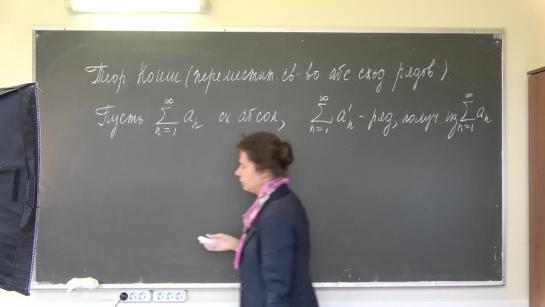 Теор Коши (переместит. св-во абс сход. рядов).
Пусть ∑_{n=1}^{∞} a_n сх. абсол, ∑_{n=1}^{∞} a'_n - ряд, получ из ∑_{n=1}^{∞} a_n